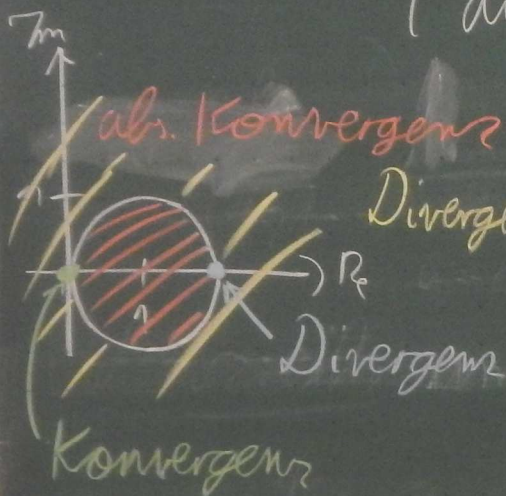 Im
abs. Konvergenz
1
Diverge
Re
1
Divergenz
Konvergenz